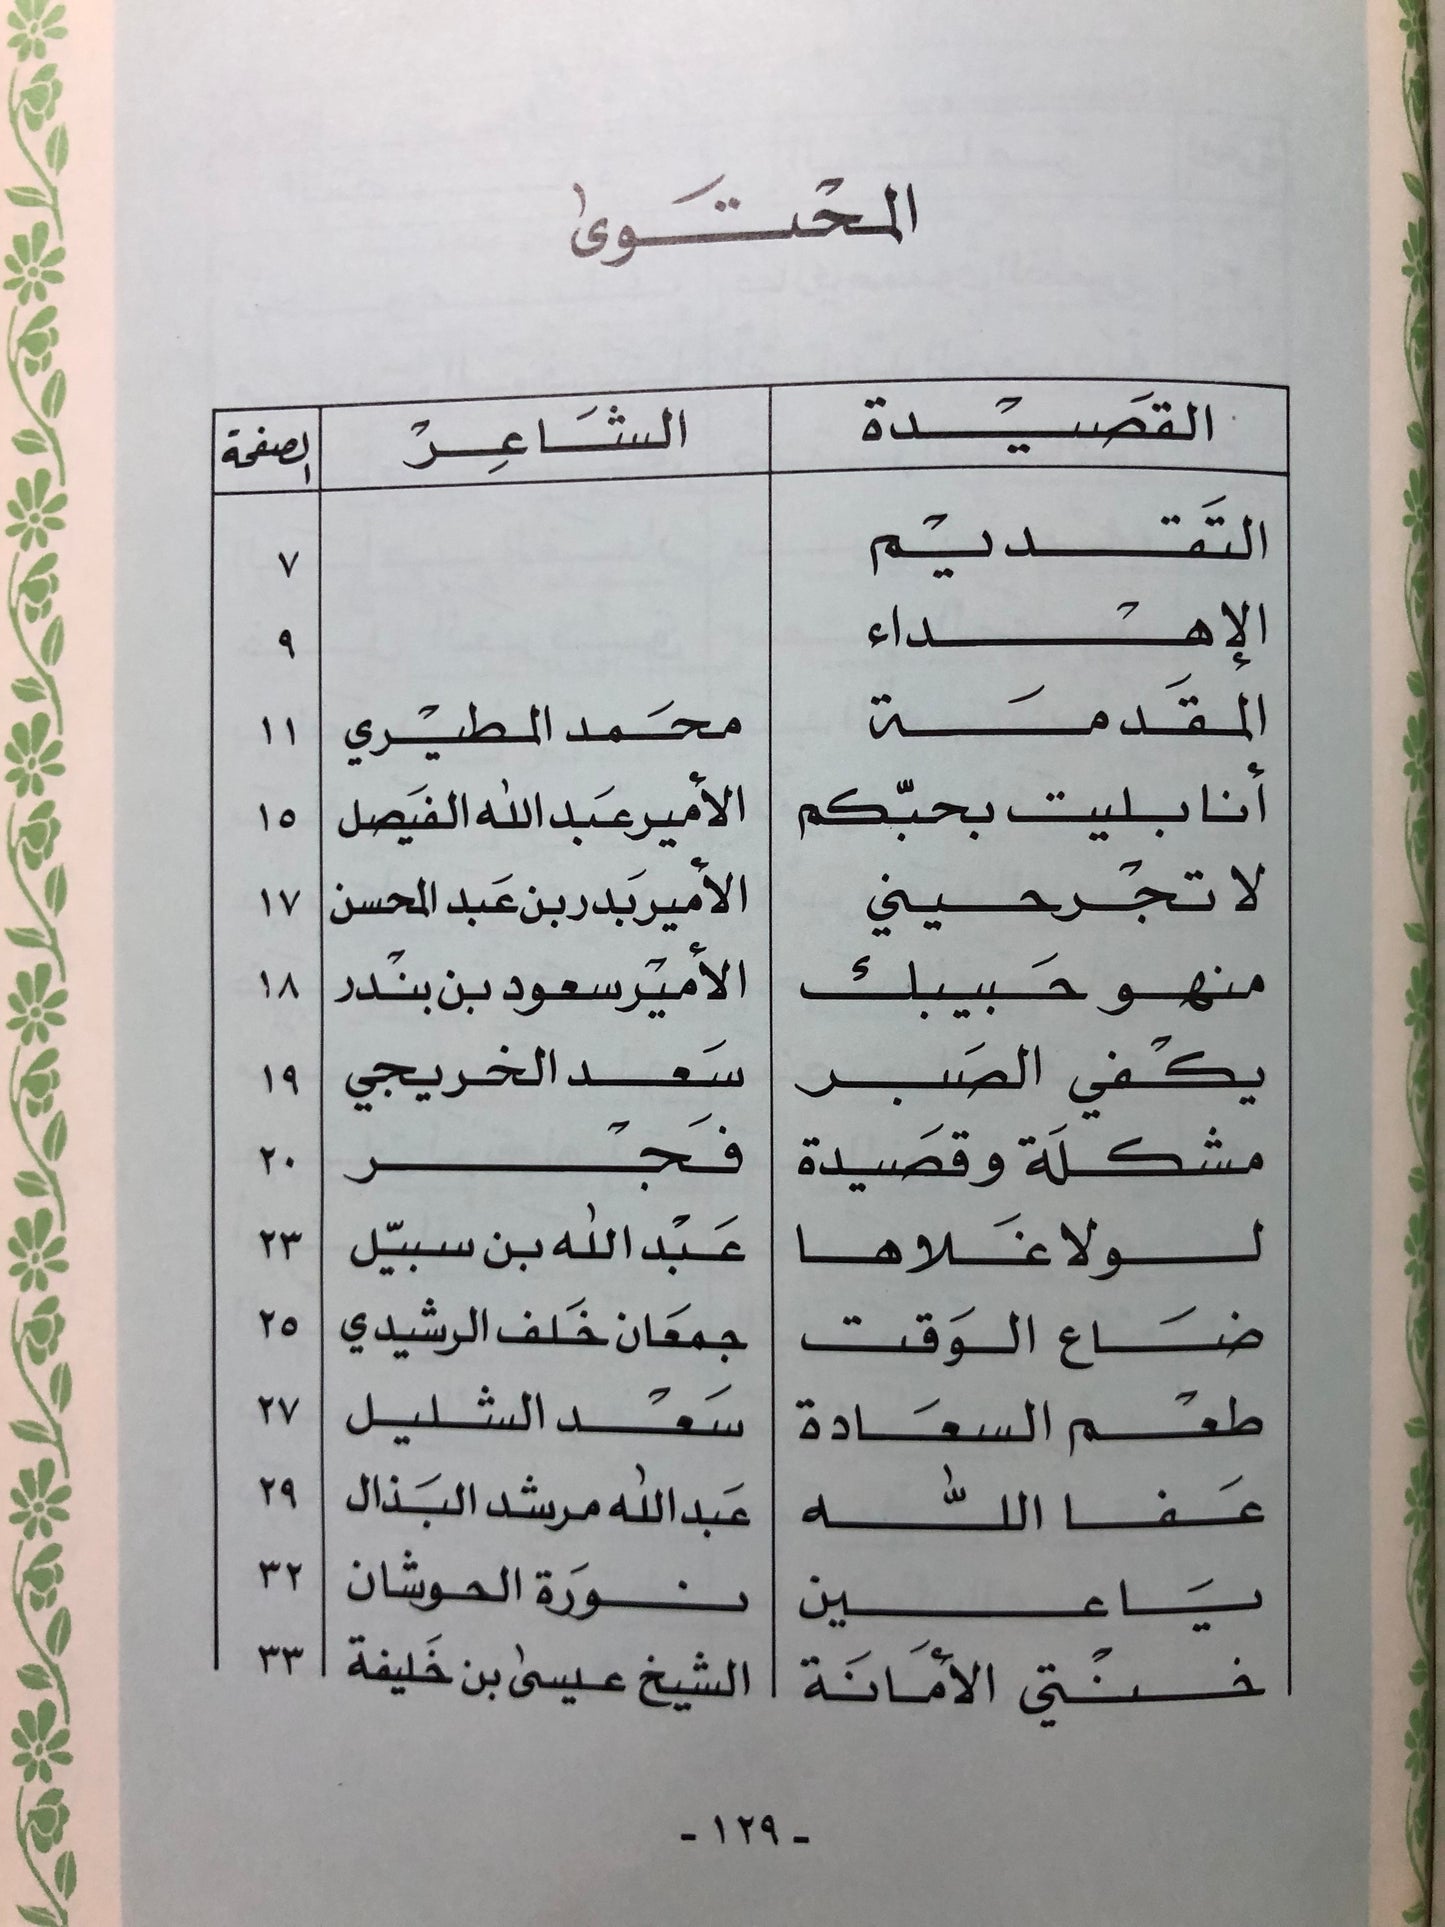 المحتوى
القصيدة الشاعر الصفحة
التقديم ٧
الإهداء ٩
المقدمة محمد المطيري ١١
أنا بليت بحبّكم الأمير عبد الله الفيصل ١٥
لا تجرحيني الأمير بدر بن عبد المحسن ١٧
منهو حبيبك الأمير سعود بن بندر ١٨
يكفي الصبر سعد الخريجي ١٩
مشكلة وقصيدة فجر ٢٠
لولا غلاها عبد الله بن سبيّل ٢٣
ضاع الوقت جمعان خلف الرشيدي ٢٥
طعم السعادة سعد الشليل ٢٧
عفا الله عبد الله مرشد البذال ٢٩
يا عين نورة الحوشان ٣٢
خنتي الأمانة الشيخ عيسى بن خليفة ٣٣
- ١٢٩ -